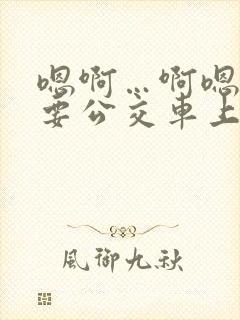 嗯啊…啊嗯
要公交車上
風御九秋